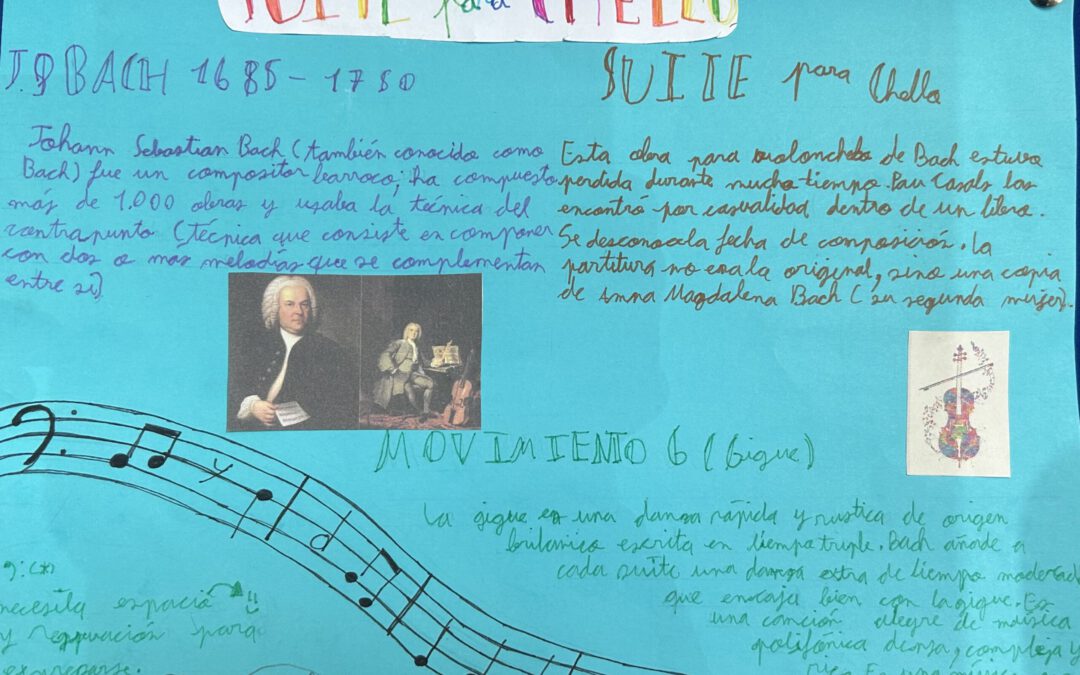 SUITE para CHELLO
J.S BACH 1685-1750
Johann Sebastian Bach (también conocido como
Bach) fue un compositor barroco; ha compuesto
más de 1.000 obras y usaba la técnica del
contrapunto (técnica que consiste en componer
con dos o mas melodías que se complementan
entre sí)
SUITE para Chello
Esta obra para violonchelo de Bach estuvo
perdida durante mucho tiempo. Pau Casals las
encontró por casualidad dentro de un libro.
Se desconoce la fecha de composición. La
partitura no era la original, sino una copia
de Anna Magdalena Bach (su segunda mujer).
MOVIMIENTO 6 (Gigue)
La gigue es una danza rápida y rustica de origen
britanico escrita en tiempo triple. Bach añade a
cada suite una danza extra de tiempo moderado
que encaja bien con la gigue. Es
una canción alegre de música
polifónica densa, compleja y
rica. Es una música
necesita espacio
y para
expresarse.